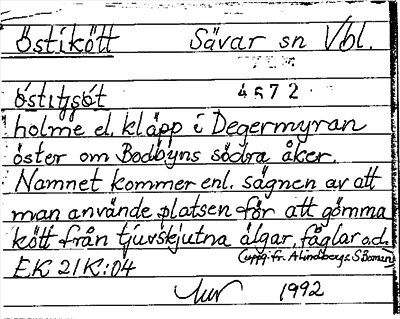 Östikött Sävar sn Vbl.
östitjsøt 4672
holme el. kläpp i Degermyran
öster om Bodbyns södra åker.
Namnet kommer enl. sägnen av att
man använde platsen för att gömma
kött från tjuvskjutna älgar, fåglar o.d.
(uppg. fr. A Lindberg S Boman)
EK 21K:04
1992